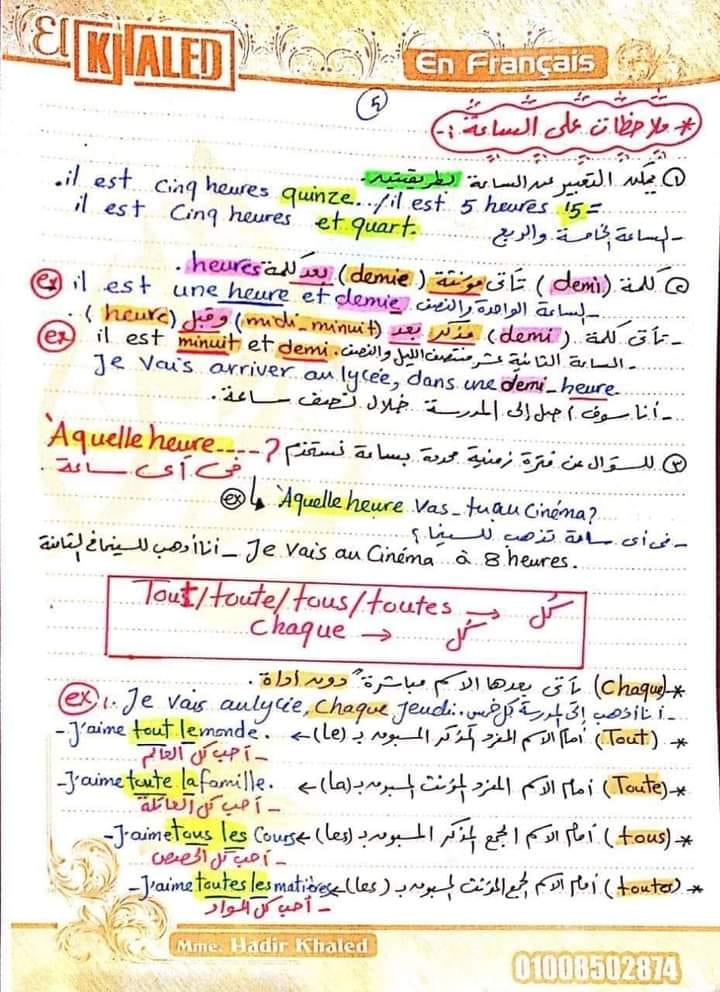 El KHALED
En Français
٤
* ملاحظات على الساعة :-
① يمكن التعبير عن الساعة بطريقتين.
.il est cinq heures quinze. / il est 5 heures 15 =
il est cinq heures et quart.
- الساعة الخامسة والربع
② كلمة (demi) تأتى مؤنثة (demie) بعد كلمة heures.
ex il est une heure et demie
- الساعة الواحدة والنصف.
- تأتى كلمة (demi) مذكر بعد (midi_minuit) وقبل (heure).
ex il est minuit et demi.
- الساعة الثانية عشر منتصف الليل والنصف.
Je vais arriver au lycée, dans une demi-heure
- أنا سوف أصل إلى المدرسة خلال نصف ساعة.
③ للسؤال عن فترة زمنية محددة بساعة نستخدم ? Aquelle heure....
فى أى ساعة
ex Aquelle heure vas-tu au cinéma?
- فى أى ساعة تذهب للسينما؟
Je vais au Cinéma à 8 heures. - أنا أذهب للسينما فى الثامنة
Tout/toute/tous/toutes → كُل
Chaque → كُل
*(Chaque) يأتى بعدها الاسم مباشرة "دون أداة.
ex 1. Je vais au lycée, chaque jeudi. - أنا أذهب إلى المدرسة كل خميس.
* (Tout) أمام الاسم المفرد المذكر المسبوق بـ (le) ← - J'aime tout le monde.
- أحب كل العالم
* (Toute) أمام الاسم المفرد المؤنث المسبوق بـ (la) ← - J'aime toute la famille.
- أحب كل العائلة
* (tous) أمام الاسم الجمع المذكر المسبوق بـ (les) ← - J'aime tous les cours
- أحب كل الحصص
* (toutes) أمام الاسم الجمع المؤنث المسبوق بـ (les) ← - J'aime toutes les matières
- أحب كل المواد
Mme. Hadir Khaled
01008502874